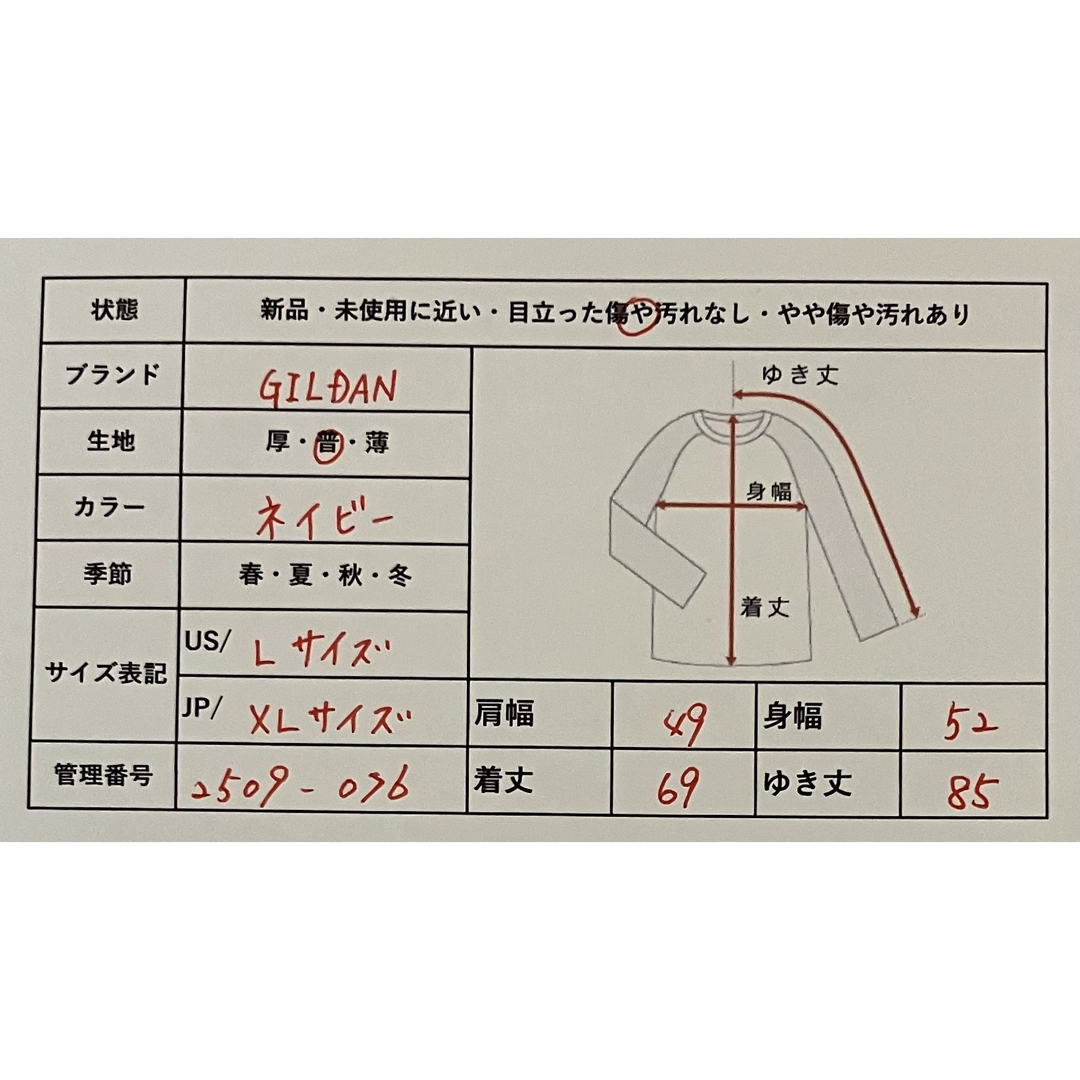 状態 新品・未使用に近い・目立った傷や汚れなし・やや傷や汚れあり
ブランド GILDAN
生地 厚・普・薄
カラー ネイビー
季節 春・夏・秋・冬
サイズ表記 US/ Lサイズ
JP/ XLサイズ
管理番号 2509-076
ゆき丈
身幅
着丈
肩幅 49 身幅 52
着丈 69 ゆき丈 85